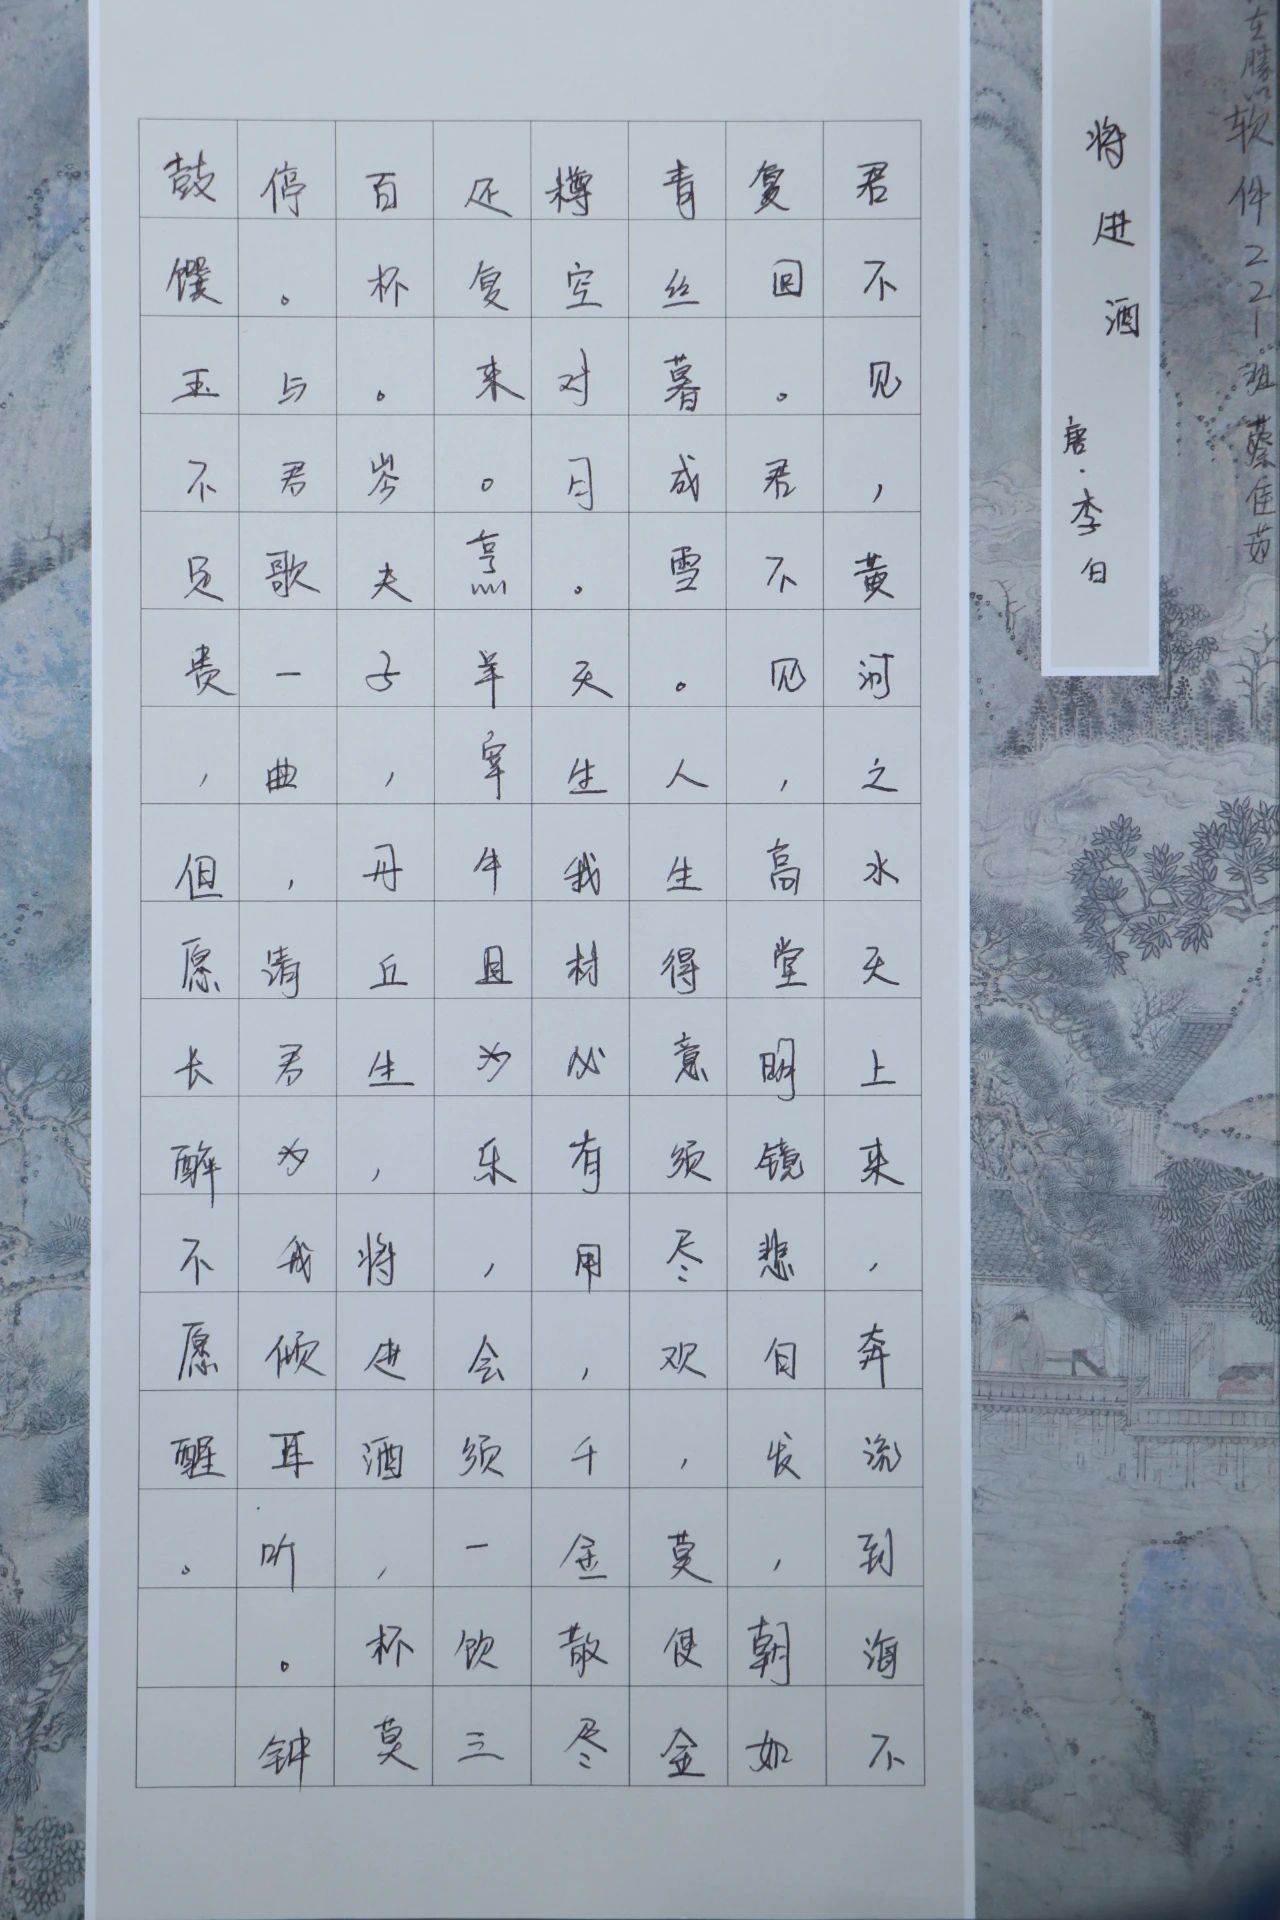 软件221班 蔡佳
将进酒
唐·李白
君不见，黄河之水天上来，奔流到海不
复回。君不见，高堂明镜悲白发，朝如
青丝暮成雪。人生得意须尽欢，莫使金
樽空对月。天生我材必有用，千金散尽
还复来。烹羊宰牛且为乐，会须一饮三
百杯。岑夫子，丹丘生，将进酒，杯莫
停。与君歌一曲，请君为我倾耳听。钟
鼓馔玉不足贵，但愿长醉不愿醒。